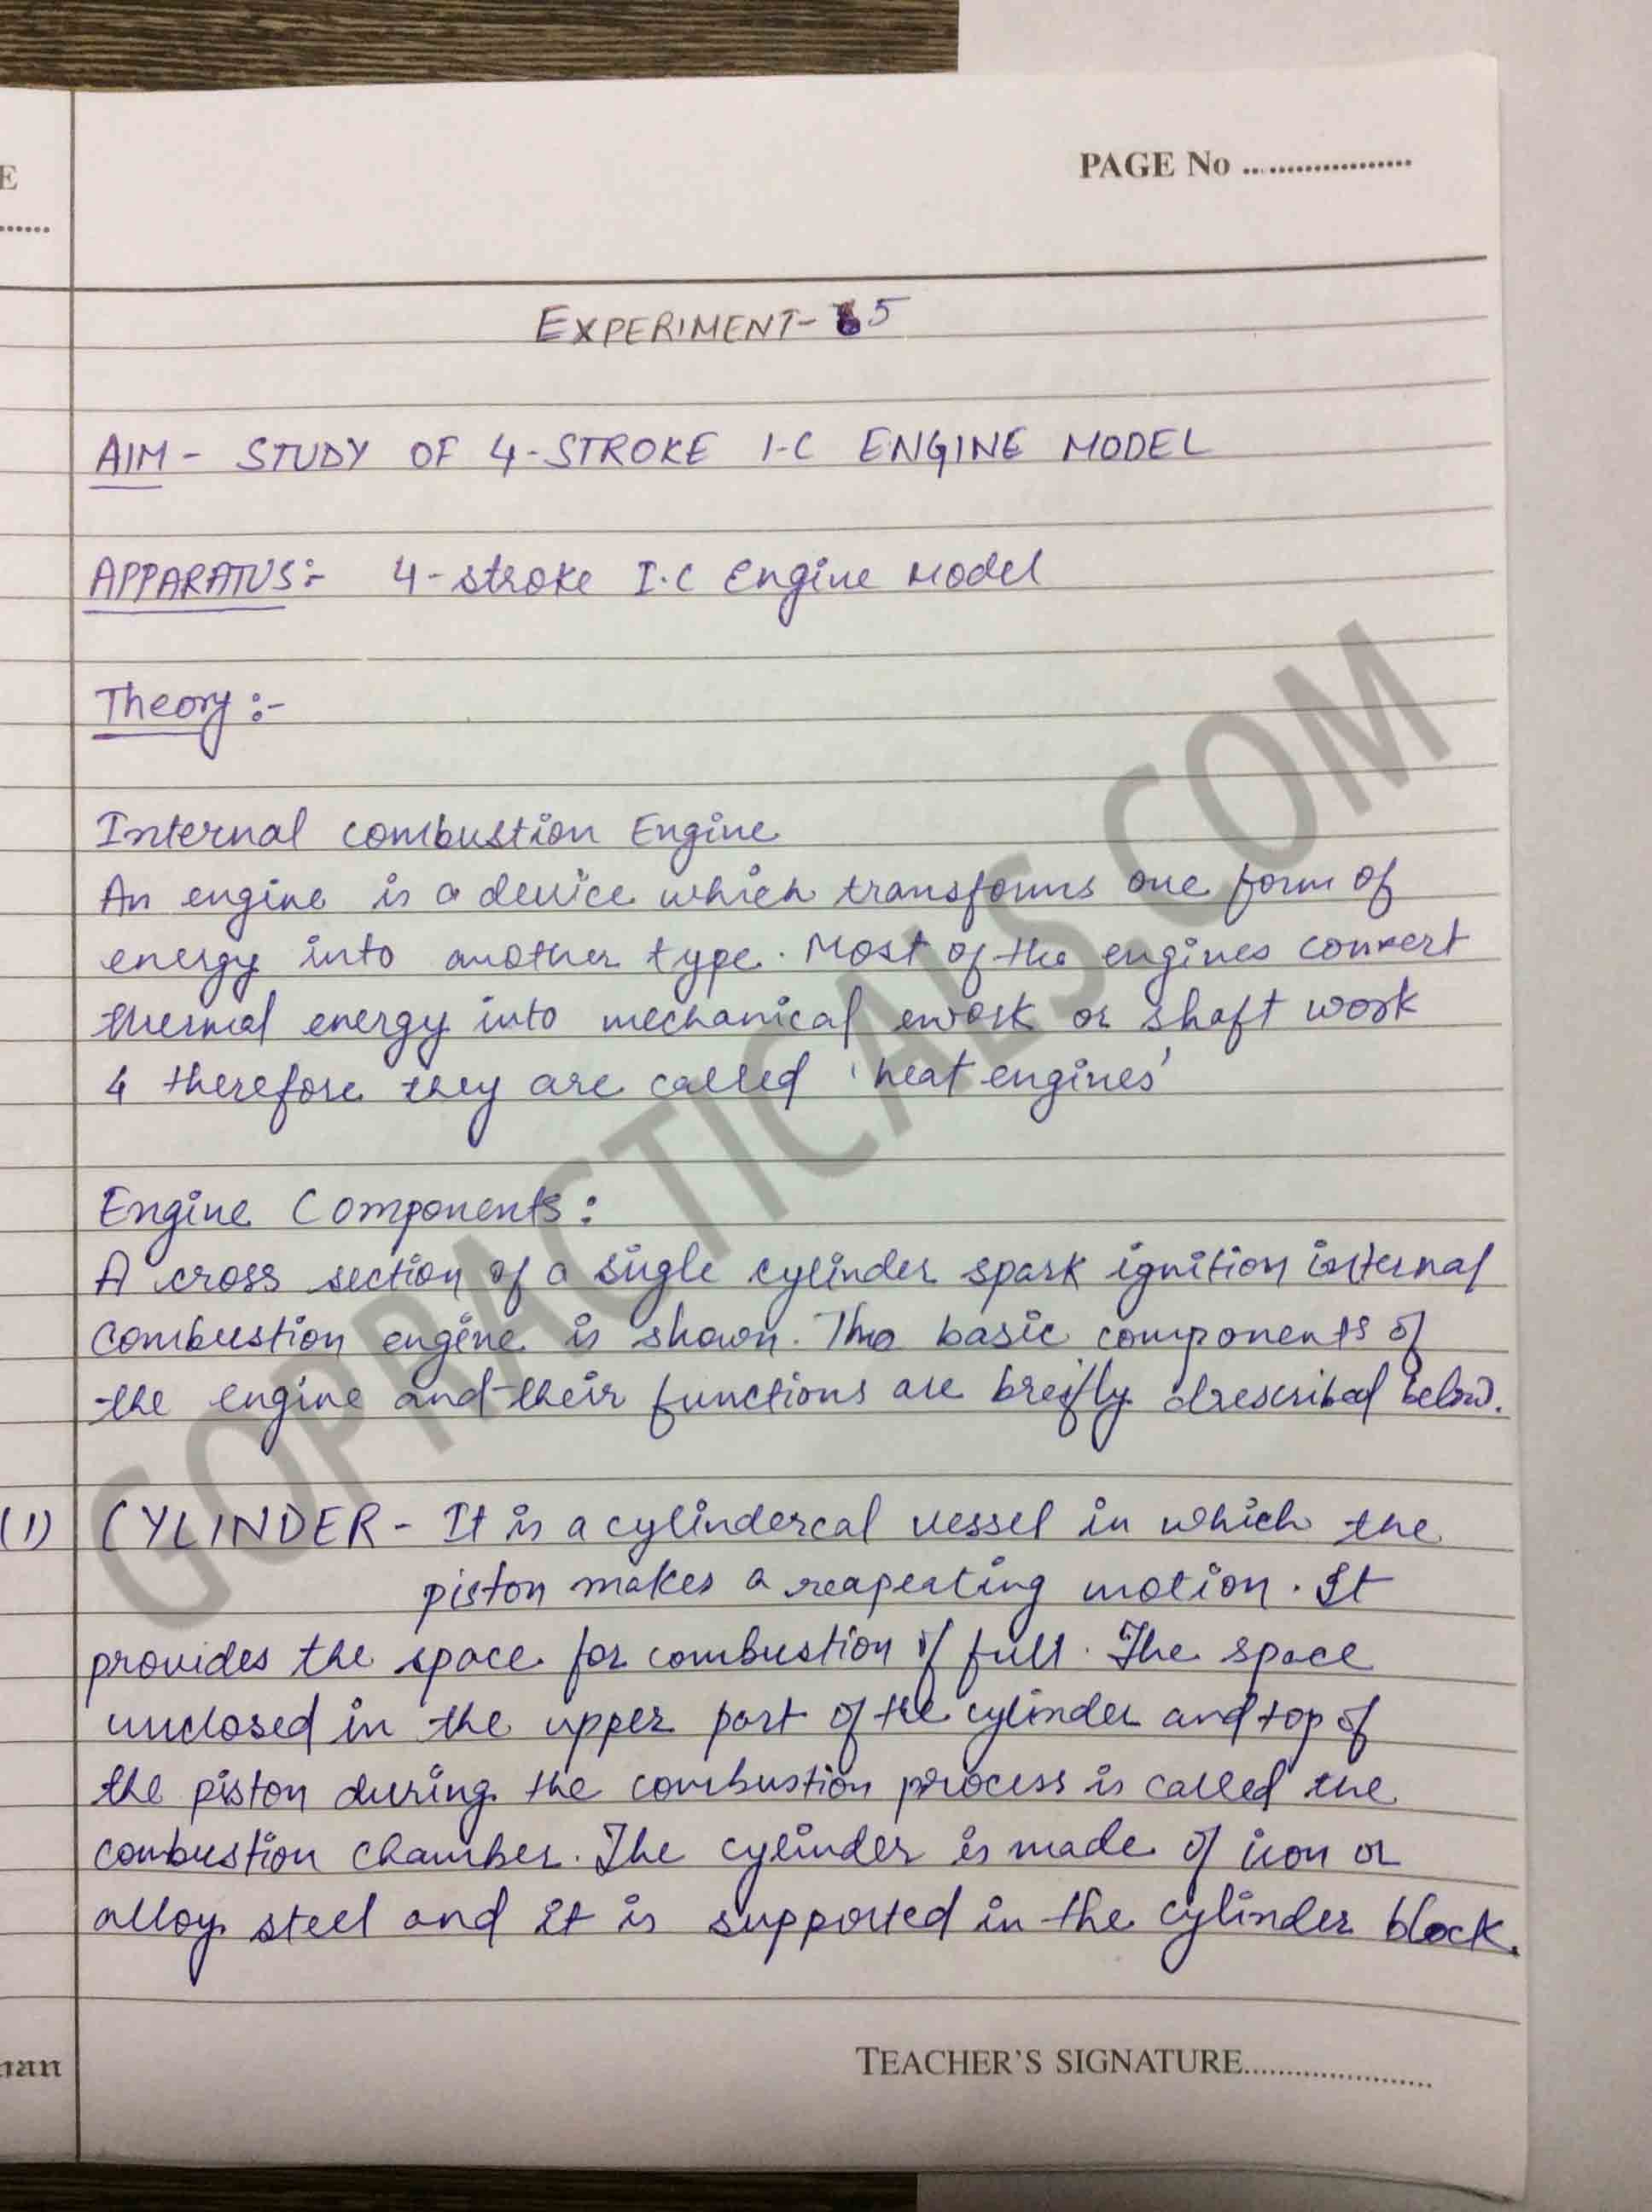 E
PAGE No ..................
.....
EXPERIMENT- 5
AIM - STUDY OF 4-STROKE I-C ENGINE MODEL
APPARATUS:- 4-stroke I.C Engine Model
Theory :-
Internal combustion Engine
An engine is a device which transforms one form of
energy into another type. Most of the engines convert
thermal energy into mechanical ework or shaft work
& therefore they are called 'heat engines'
Engine Components :
A cross section of a sigle cylinder spark ignition internal
combustion engine is shown. The basic components of
the engine and their functions are breifly drescribed below.
(1) CYLINDER - It is a cylindercal vessel in which the
piston makes a reapeating motion. It
provides the space for combustion of full. The space
unclosed in the upper part of the cylinder and top of
the piston during the combustion process is called the
combustion chamber. The cylinder is made of iron or
alloy steel and it is supported in the cylinder block.
nan
TEACHER'S SIGNATURE......................
GOPRACTICALS.COM